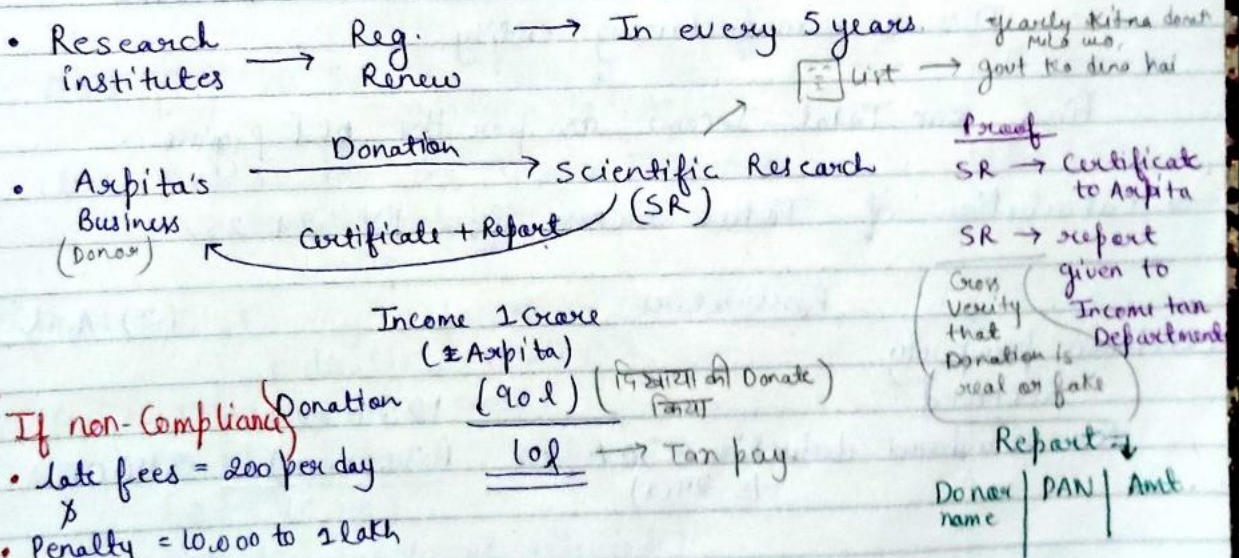 • Research institutes → Reg. Renew → In every 5 years.
yearly kitna donat
mila wo,
List → govt ko dena hai
• Arpita's Business (Donor)
Donation →
Scientific Research (SR)
Certificate + Report
Proof
SR → Certificate to Arpita
SR → report given to Income tax Department
Cross Verify that Donation is real or fake
Income 1 Crore
(Arpita)
Donation (90l) (दिखाया की Donate किया)
10l → Tax pay
If non-Compliance
• late fees = 200 per day
&
• Penalty = 10,000 to 1 lakh
Report ↓
Donor name | PAN | Amt.